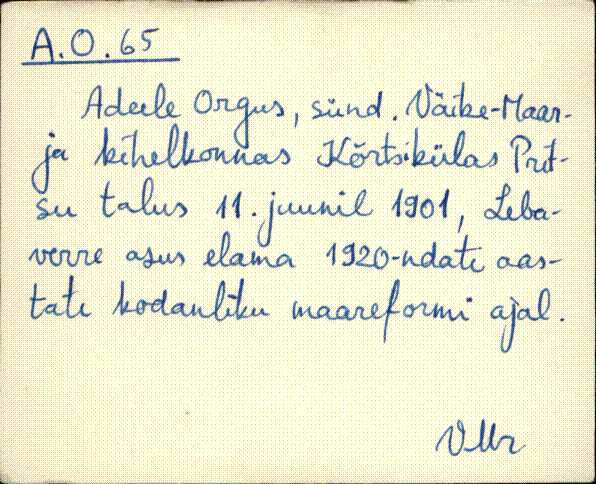 A.O.65
Adeele Orgus, sünd. Väike-Maar-
ja kihelkonnas Kõrtsikülas Prit-
su talus 11. juunil 1901, Leba-
verre asus elama 1920-ndate aas-
tate kodanliku maareformi ajal.
VMr